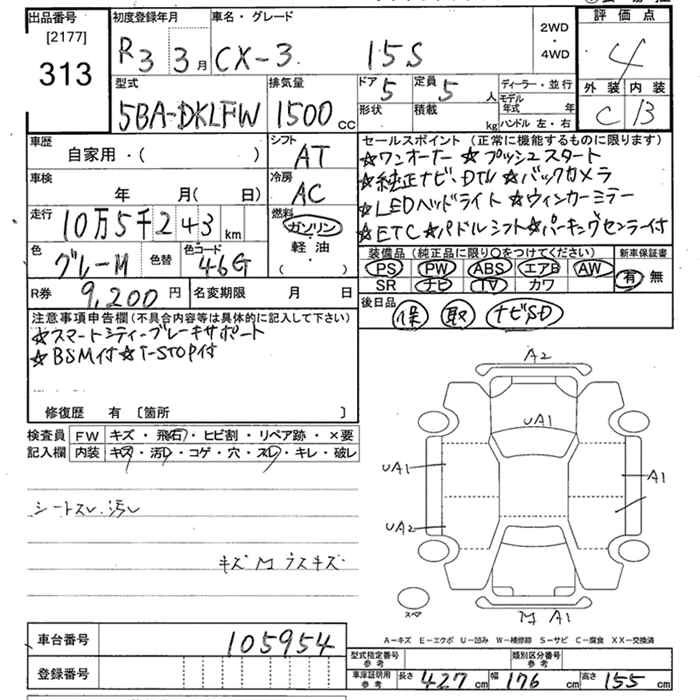 出品番号
[2177]
313
初度登録年月
R3 3月
車名・グレード
CX-3 15S
2WD
・
4WD
評価点
4
外装 内装
C B
型式
5BA-DKLFW
排気量
1500cc
ドア 5
定員 5人
形状
積載 kg
ディーラー・並行
モデル年式 年
ハンドル 左・右
車歴
自家用・( )
シフト
AT
車検
年 月( 日)
冷房
AC
走行
10万5千243km
燃料
ガソリン
軽油
・( )
色
グレーM
色替
色コード
46G
R券 9,200円
名変期限 月 日
セールスポイント (正常に機能するものに限ります)
☆ワンオーナー ☆プッシュスタート
☆純正ナビ、DTV ☆バックカメラ
☆LEDヘッドライト ☆ウィンカーミラー
☆ETC ☆パドルシフト ☆パーキングセンサー付
装備品 (純正品に限り〇をつけてください)
PS PW ABS エアB AW
SR ナビ TV カワ
新車保証書
有 無
後日品
保 取 ナビSD
注意事項申告欄(不具合内容等は具体的に記入して下さい)
☆スマートシティーブレーキサポート
☆BSM付 ☆i-STOP付
修復歴 有 〔箇所 〕
検査員
記入欄
FW キズ・飛石・ヒビ割・リペア跡・×要
内装 キズ・汚レ・コゲ・穴・スレ・キレ・破レ
シートスレ・汚レ
キズ M ラスキズ
A2
UA1
UA1
A1
UA2
スペア
M A1
A−キズ E−エクボ U−凹み W−補修跡 S−サビ C−腐食 XX−交換済
車台番号 105954
登録番号
型式指定番号
参考
類別区分番号
参考
車庫証明用
参考
長さ 427cm 幅 176cm 高さ 155cm